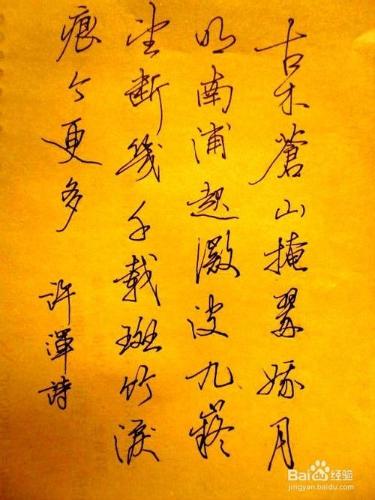 古木蒼山掩翠娥月
明南浦起微波九嶷
望断幾千載斑竹淚
痕今更多
許渾詩
Baidu经验
jingyan.baidu.com